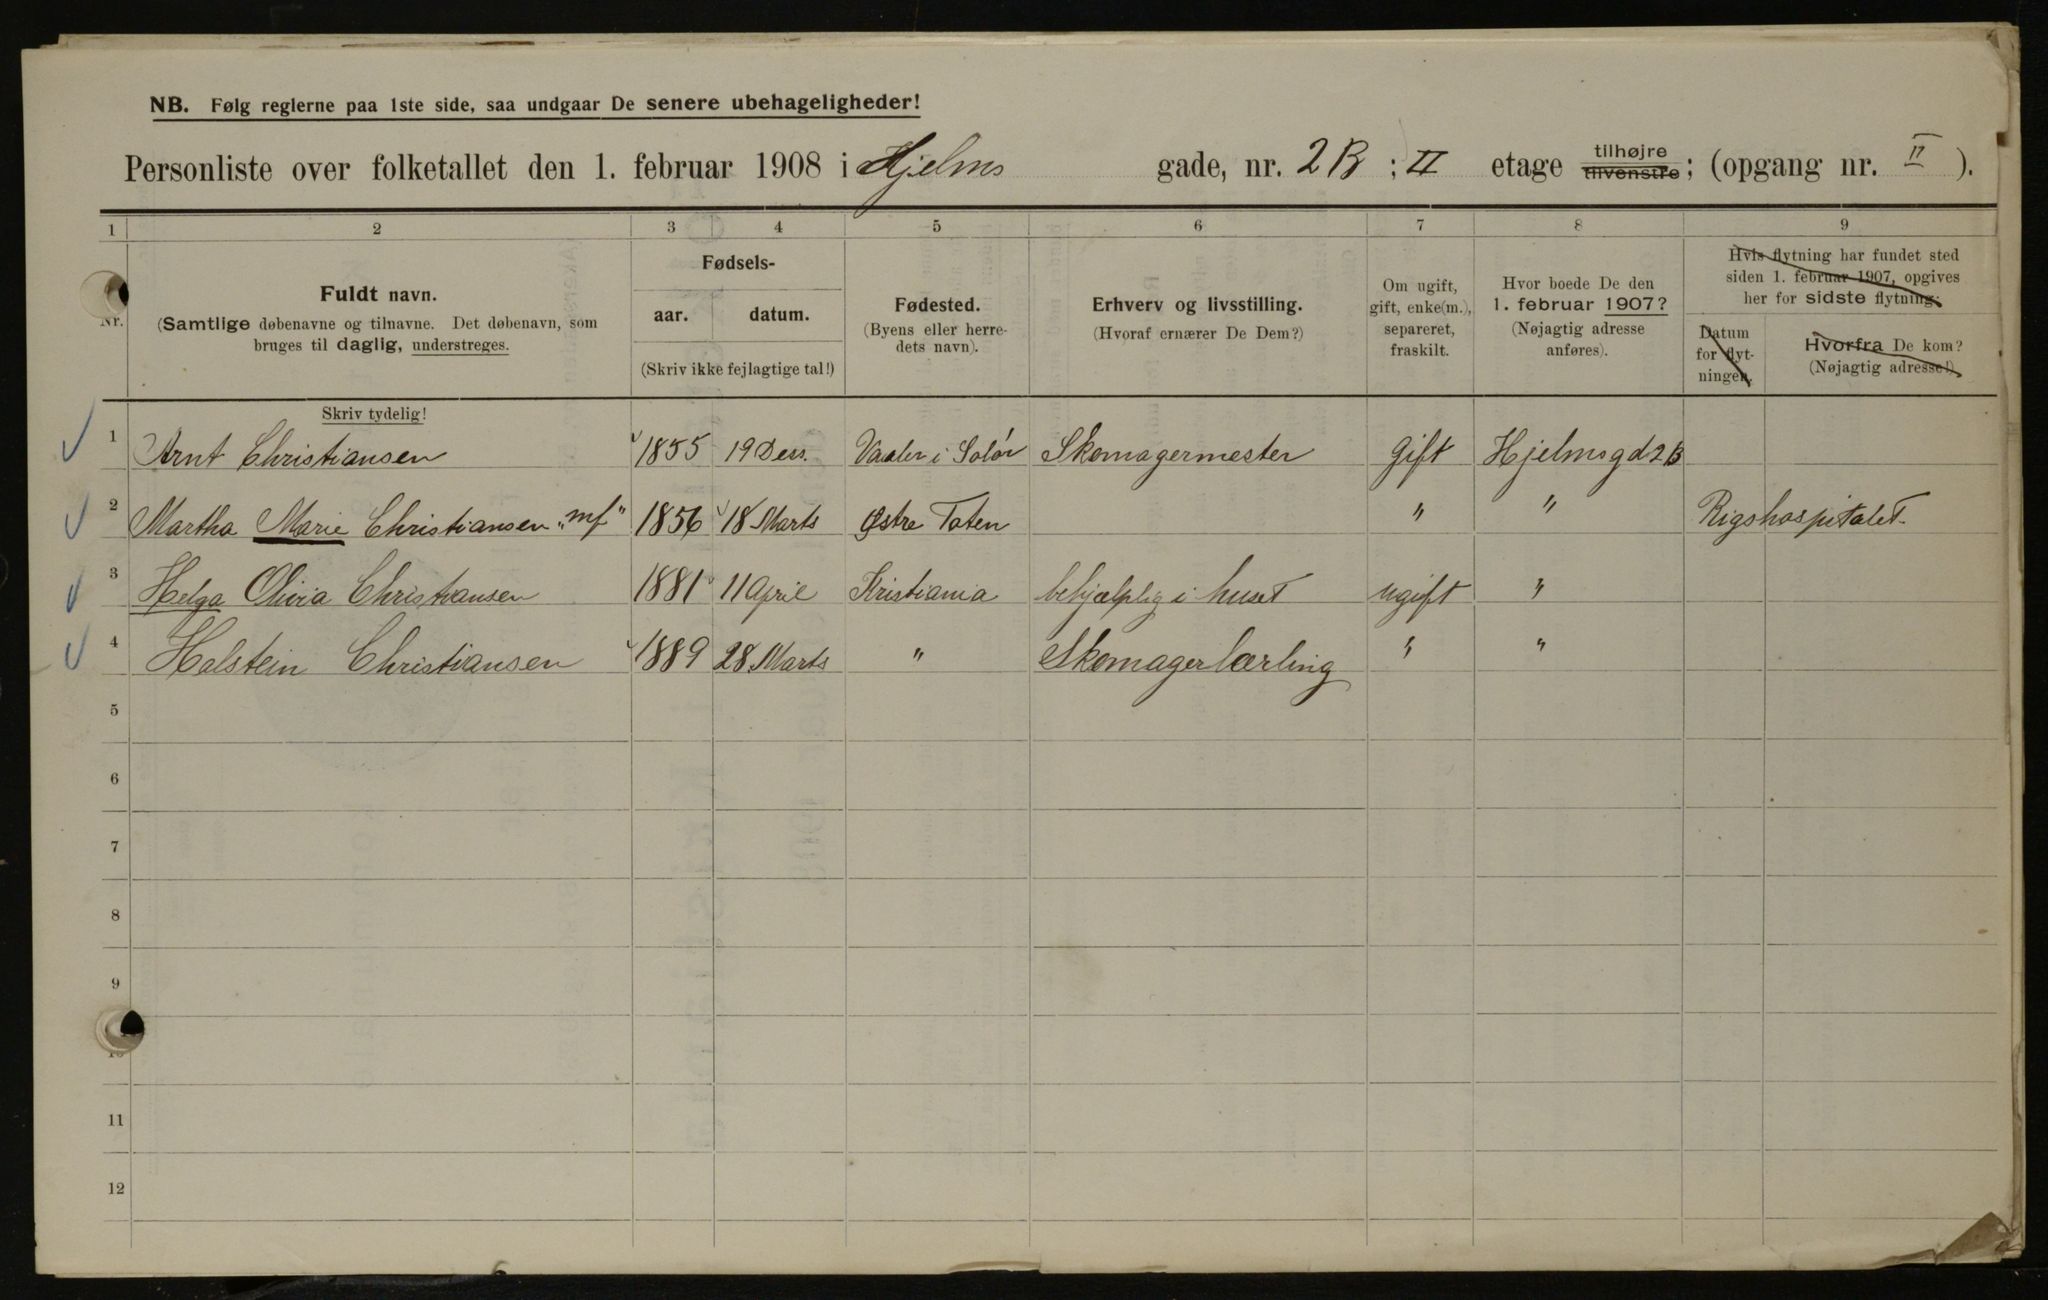 NB. Følg reglerne paa 1ste side, saa undgaar De senere ubehageligheder!
Personliste over folketallet den 1. februar 1908 i Hjelms gade, nr. 2B ; II etage tilhøjre tilvenstre; (opgang nr. II ).
1 2 3 4 5 6 7 8 9
Nr.
Fuldt navn.
(Samtlige døbenavne og tilnavne. Det døbenavn, som
bruges til daglig, understreges.
Fødsels-
aar. datum.
(Skriv ikke fejlagtige tal!)
Fødested.
(Byens eller herre-
dets navn).
Erhverv og livsstilling.
(Hvoraf ernærer De Dem?)
Om ugift,
gift, enke(m.),
separeret,
fraskilt.
Hvor boede De den
1. februar 1907?
(Nøjagtig adresse
anføres).
Hvis flytning har fundet sted
siden 1. februar 1907, opgives
her for sidste flytning:
Datum
for flyt-
ningen.
Hvorfra De kom?
(Nøjagtig adresse!)
Skriv tydelig!
1 Arnt Christiansen 1855 19 Des. Vaaler i Solør Skomagermester Gift Hjelmsgd 2B
2 Martha Marie Christiansen "mf" 1856 18 Marts Østre Toten " " Rigshospitalet.
3 Helga Olivia Christiansen 1881 11 April Kristiania behjælplig i huset ugift "
4 Holstein Christiansen 1889 28. Marts " Skomagerlærling " "
5
6
7
8
9
11
12